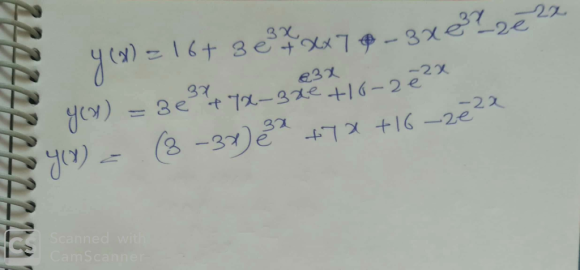 y(x) = 16 + 3e^{3x} + x×7 - 3xe^{3x} - 2e^{-2x}
y(x) = 3e^{3x} + 7x - 3xe^{3x} + 16 - 2e^{-2x}
y(x) = (3 - 3x)e^{3x} + 7x + 16 - 2e^{-2x}
CS Scanned with
CamScanner